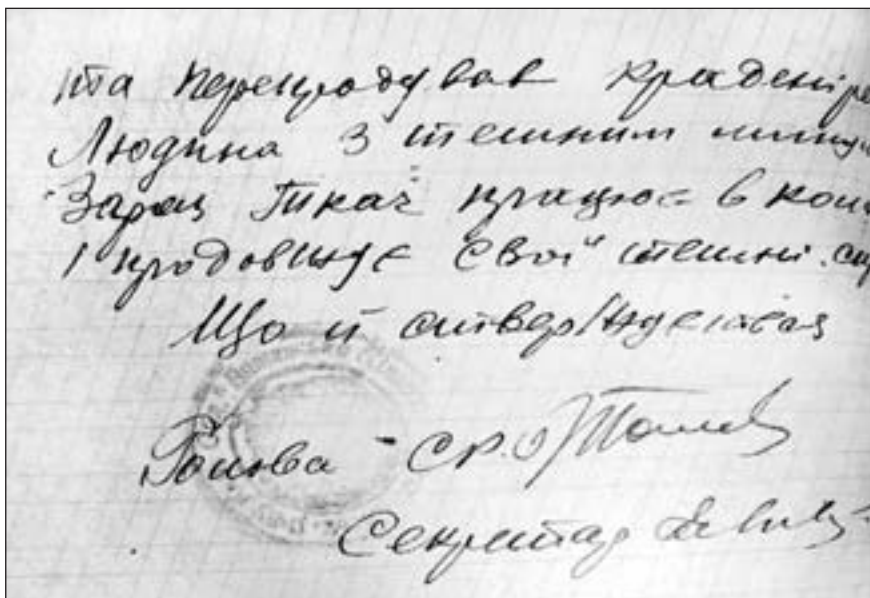 та перепродував крадені ре
Людина з темним мину
Зараз Ткач працює в кон
і продовжує свої темні.
Що й стверджується
Голова СР.
Секретар